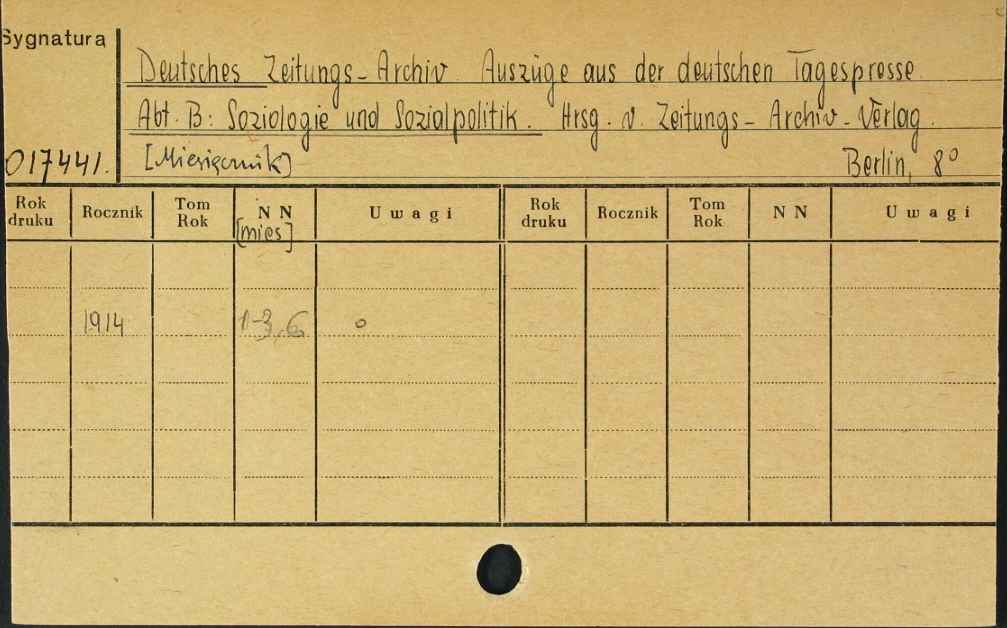 Sygnatura
Deutsches Zeitungs-Archiv. Auszüge aus der deutschen Tagespresse.
Abt. B: Soziologie und Sozialpolitik. Hrsg. v. Zeitungs-Archiv-Verlag.
017441. [Miesięcznik] Berlin, 8°
Rok druku Rocznik Tom Rok NN Uwagi Rok druku Rocznik Tom Rok NN Uwagi
[mies]
1914 1-3,6 o